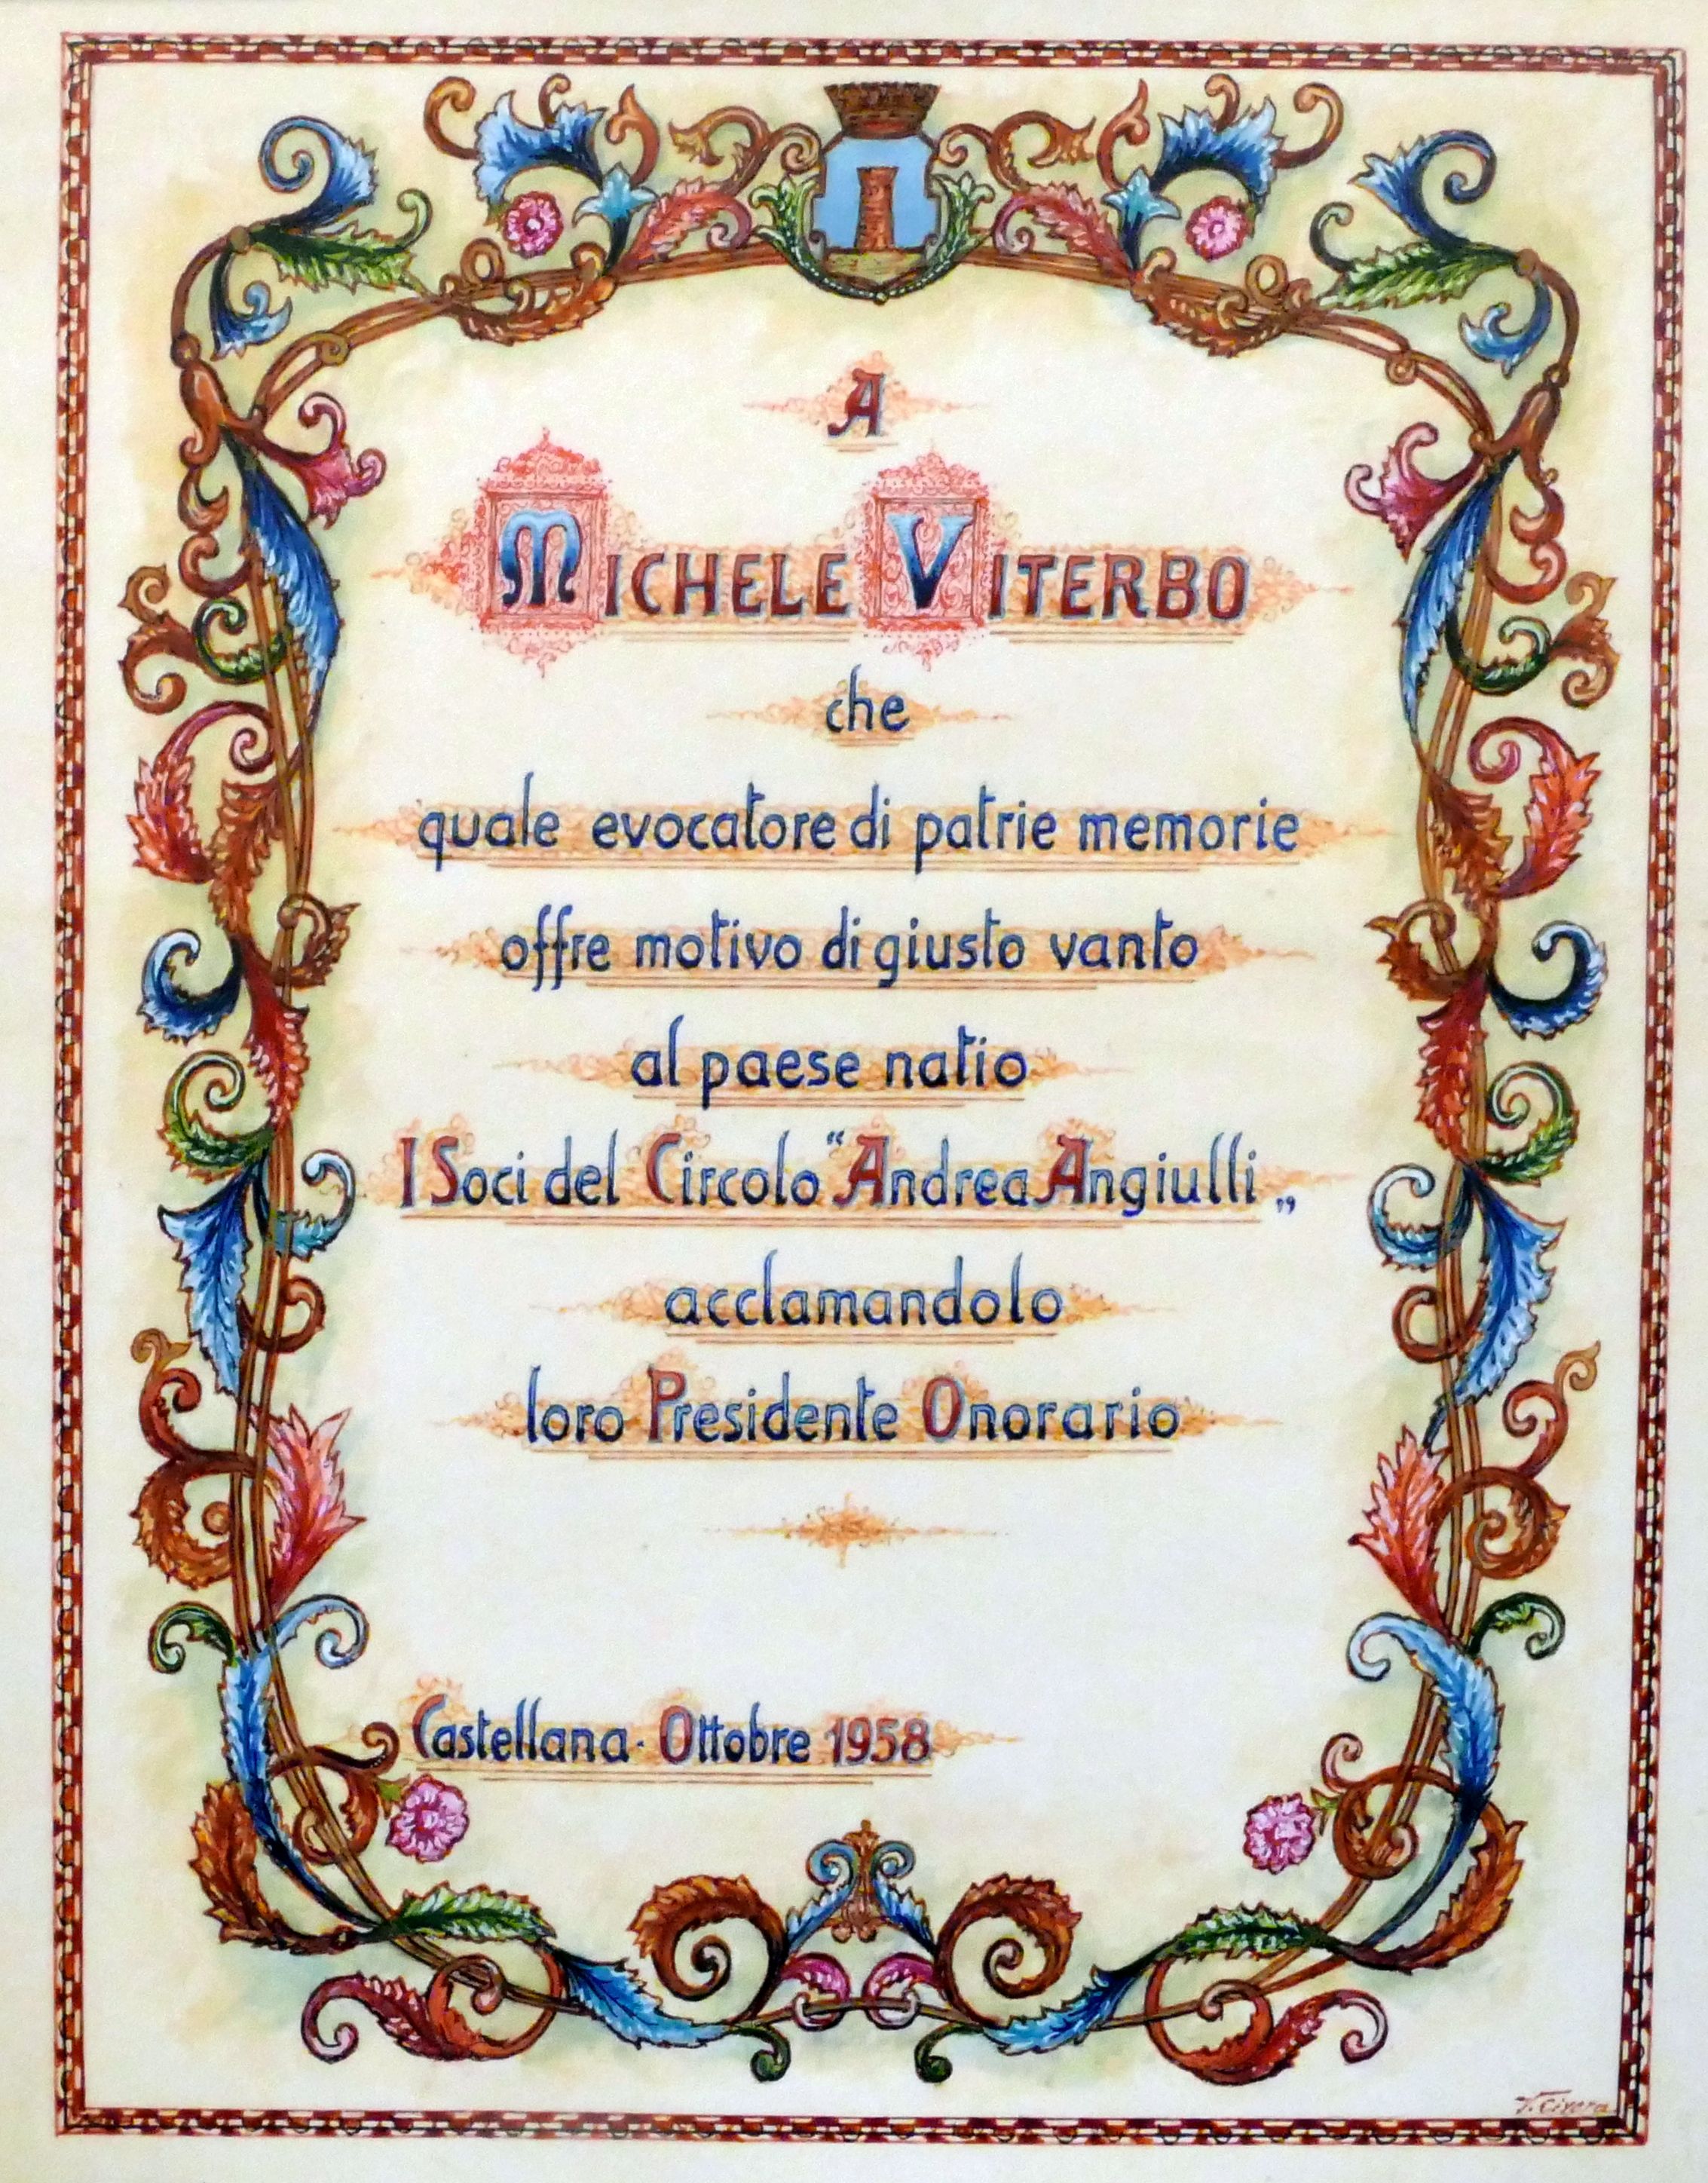 A
MICHELE VITERBO
che
quale evocatore di patrie memorie
offre motivo di giusto vanto
al paese natio
I Soci del Circolo “Andrea Angiulli„
acclamandolo
loro Presidente Onorario
Castellana · Ottobre 1958